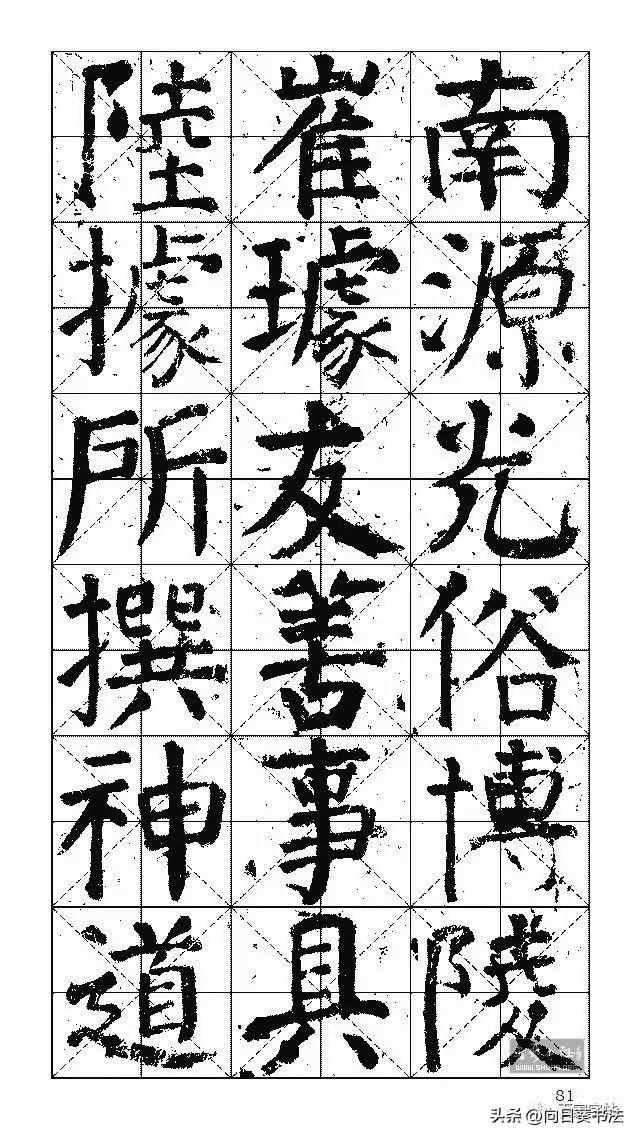 南源光俗博陵
崔璩友善事具
陸據所撰神道
81
头条 @向日葵书法